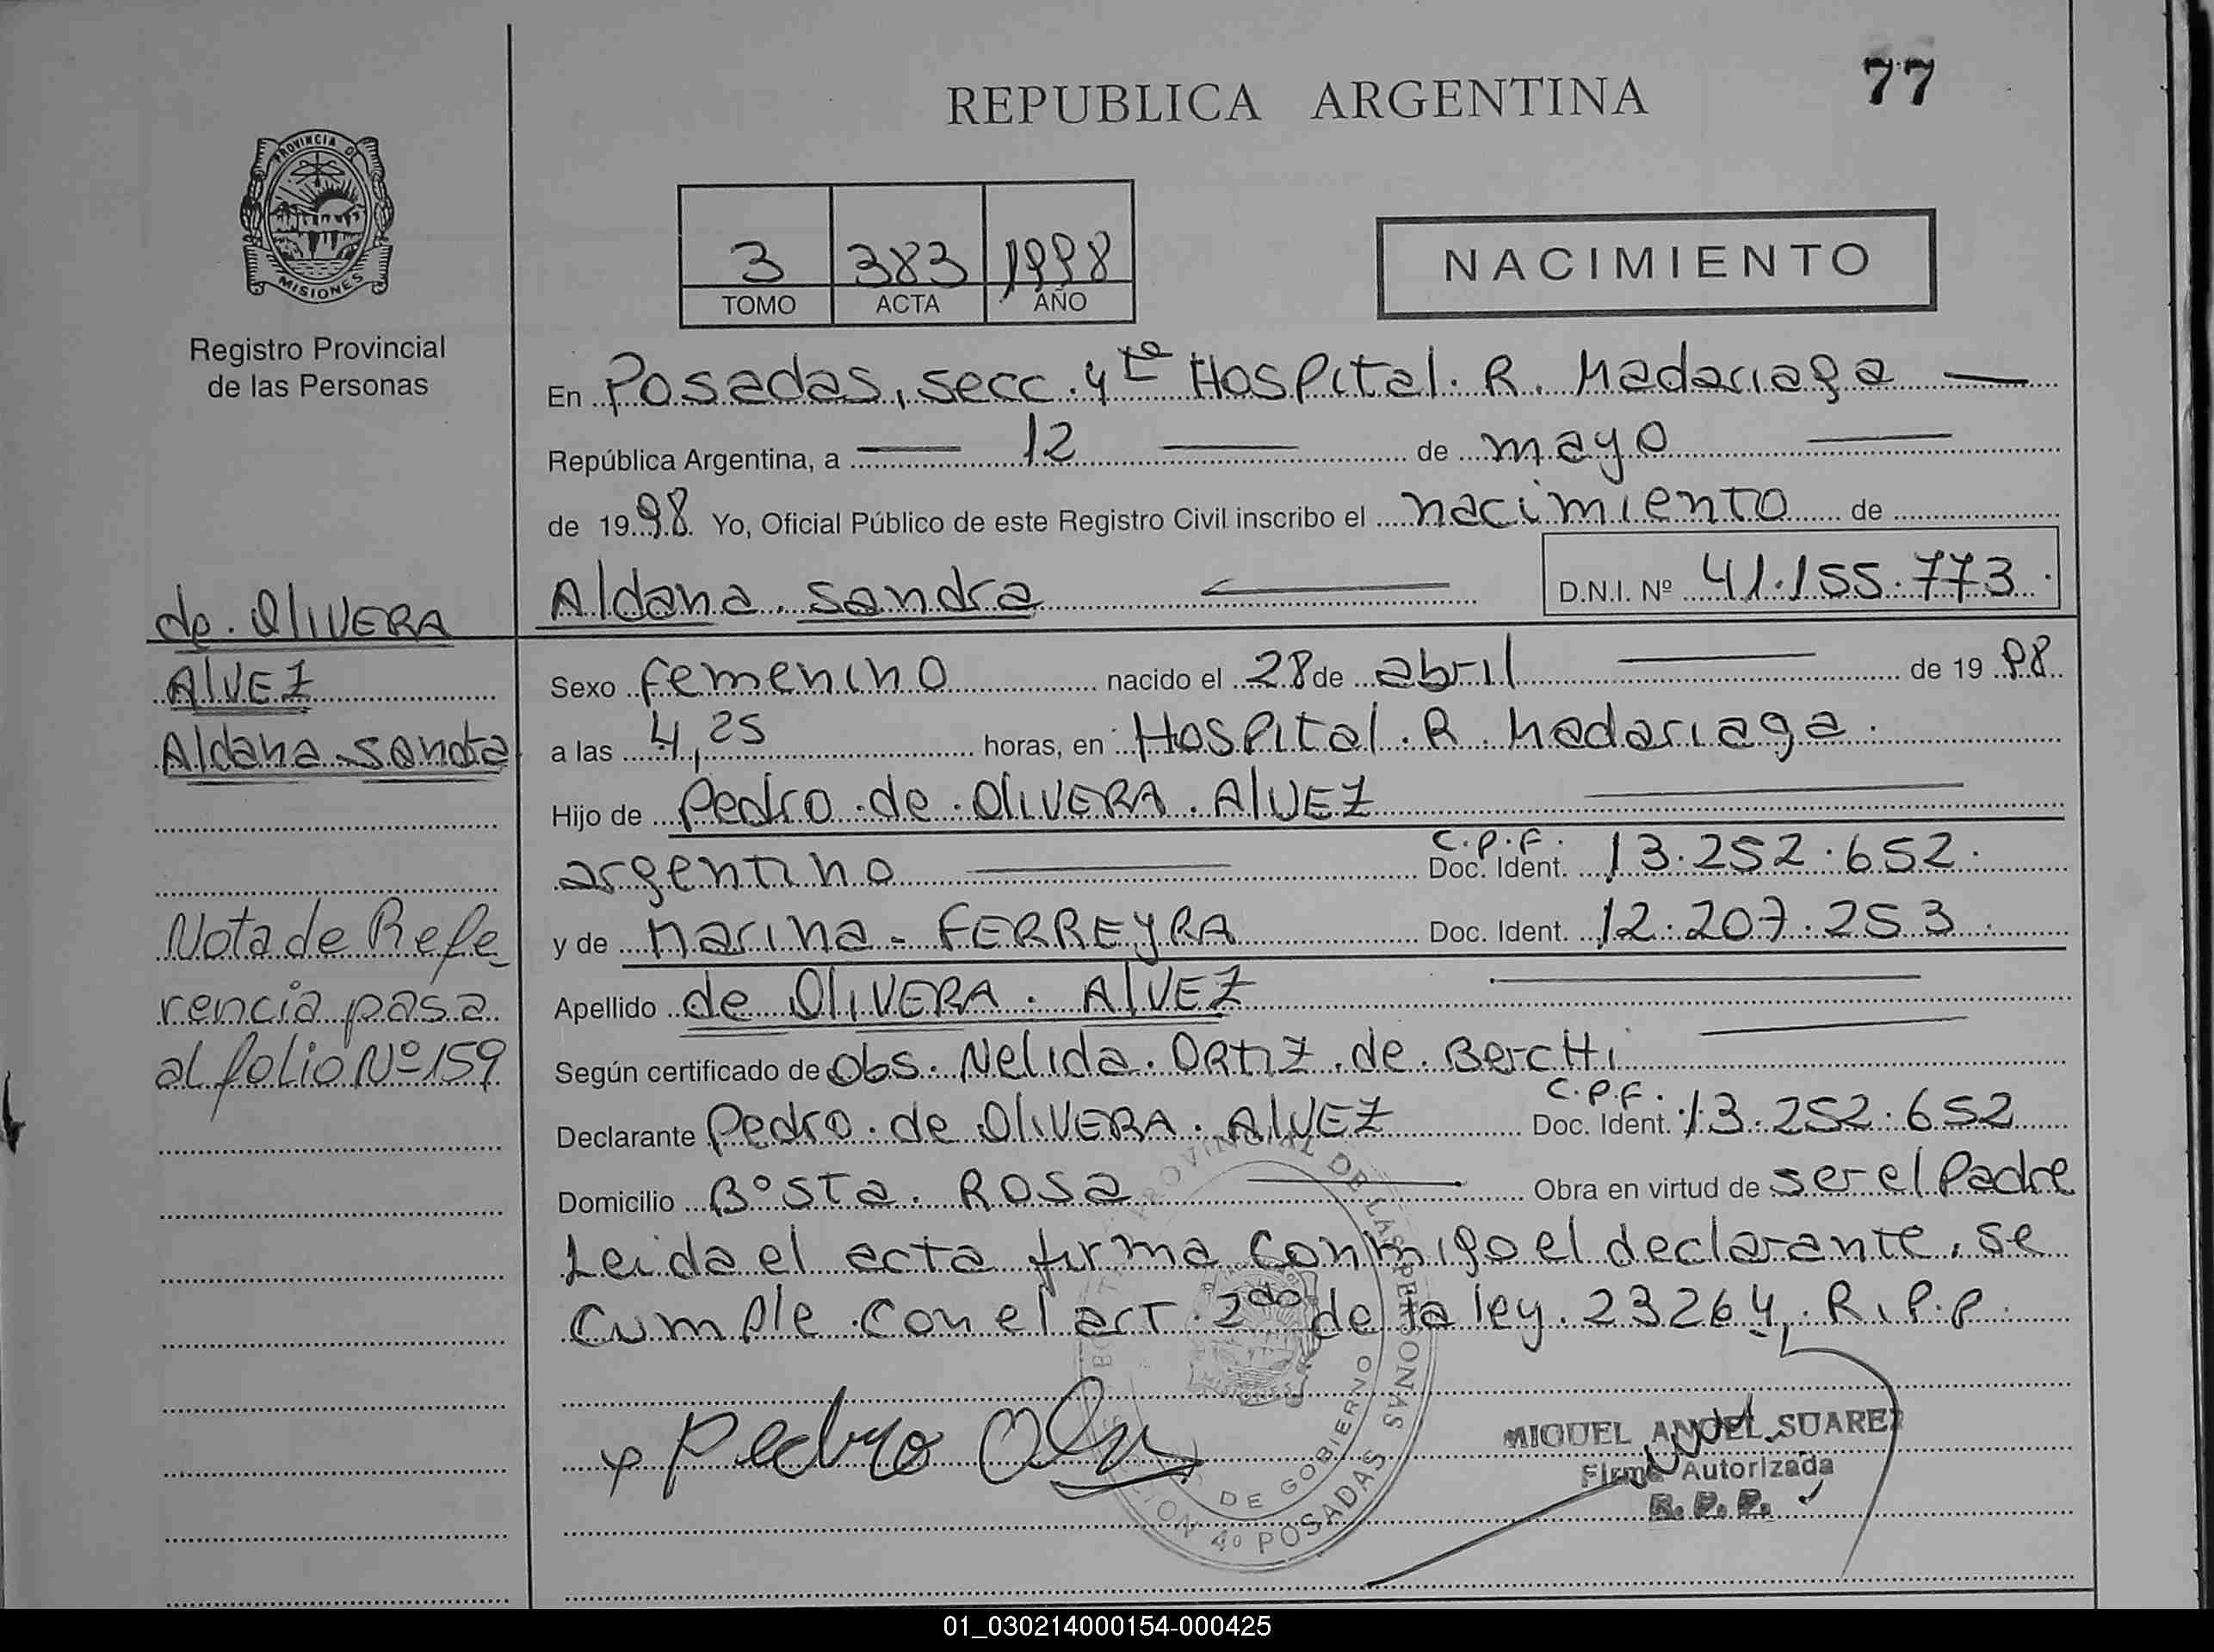 77
REPUBLICA ARGENTINA
PROVINCIA DE
MISIONES
Registro Provincial
de las Personas
3 383 1998
TOMO ACTA AÑO
NACIMIENTO
En Posadas, secc. 4ta Hospital. R. Madariaga
República Argentina, a 12 de mayo
de 1998. Yo, Oficial Público de este Registro Civil inscribo el nacimiento de
Aldana. Sandra
D.N.I. Nº 41.155.773.
de. OlIVERA
AlVEZ
Aldana Sandra
Nota de Refe
rencia pasa
al folio Nº 159
Sexo femenino nacido el 28 de abril de 19 98
a las 4,25 horas, en Hospital. R. Madariaga.
Hijo de Pedro. de. OlIVERA. AlVEZ
argentino C.P.F. Doc. Ident. 13.252.652.
y de Marina - FERREYRA Doc. Ident. 12.207.253.
Apellido de OlIVERA. AlVEZ
Según certificado de Obs. Nelida. ORtiZ. de. BerctTi
Declarante Pedro. de OlIVERA. AlVEZ C.P.F. Doc. Ident. 13.252.652
Domicilio Bº STa. ROSa Obra en virtud de ser el Padre
Leida el acta firma conmigo el declarante, se
cumple con el art. 2do de la ley. 23264, R.P.P.
Pedro
MIGUEL ANGEL SUAREZ
Firma Autorizada
R. P. P.
PROVINCIAL DE LAS PERSONAS
DE GOBIERNO
4º POSADAS
01_030214000154-000425